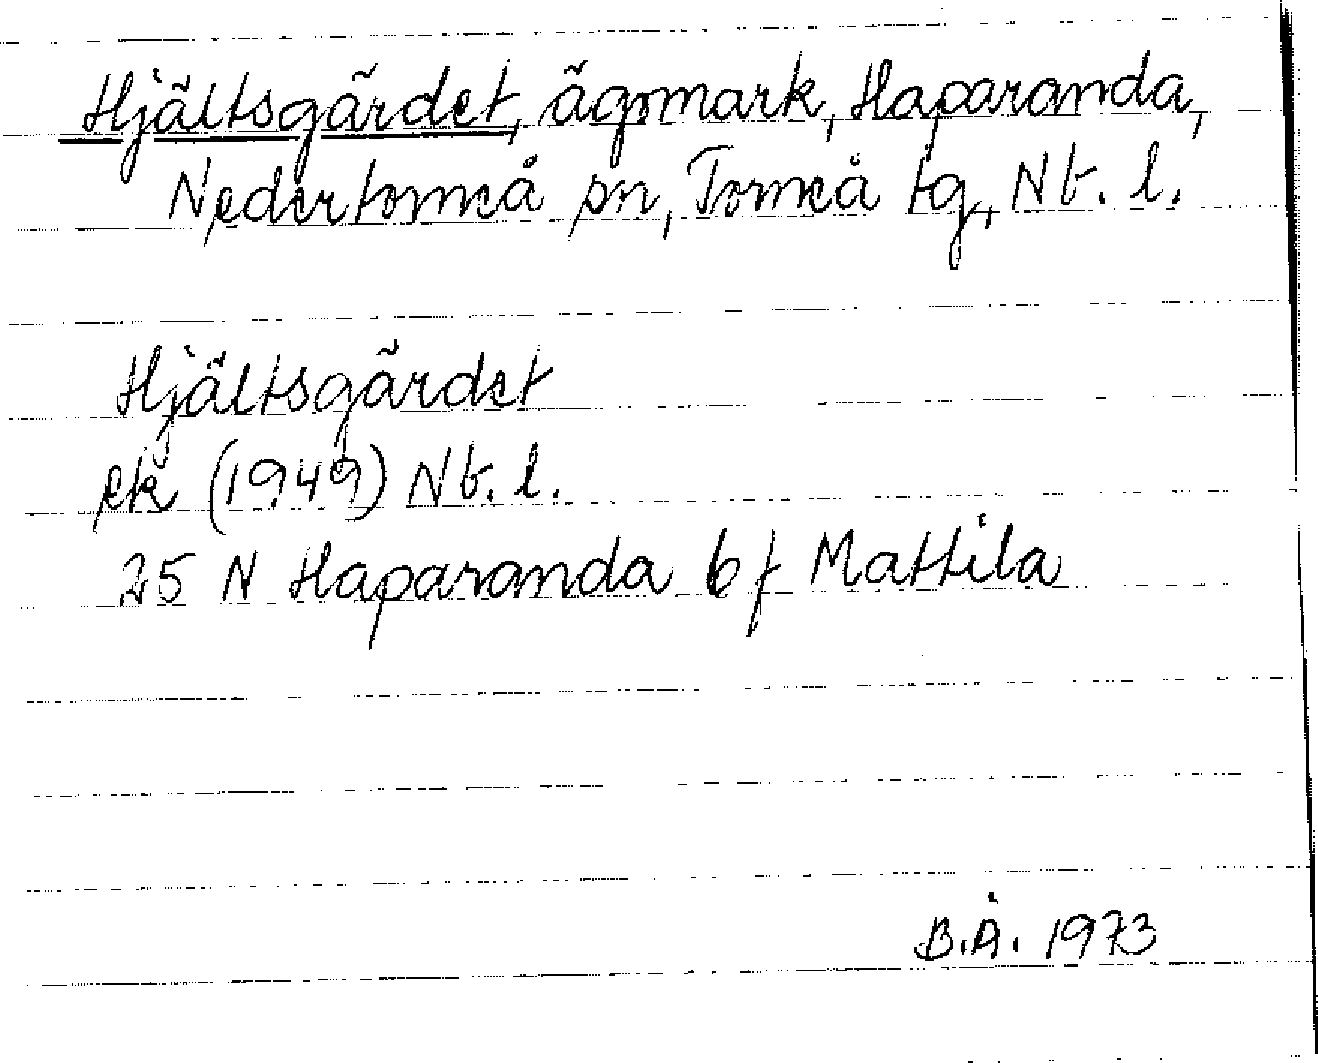 Hjältsgärdet, ägomark, Haparanda,
Nedertorneå sn, Torneå tg, Nb. l.
Hjältsgärdet
ek (1949) Nb. l.
25 N Haparanda bf Mattila
B.Å. 1973